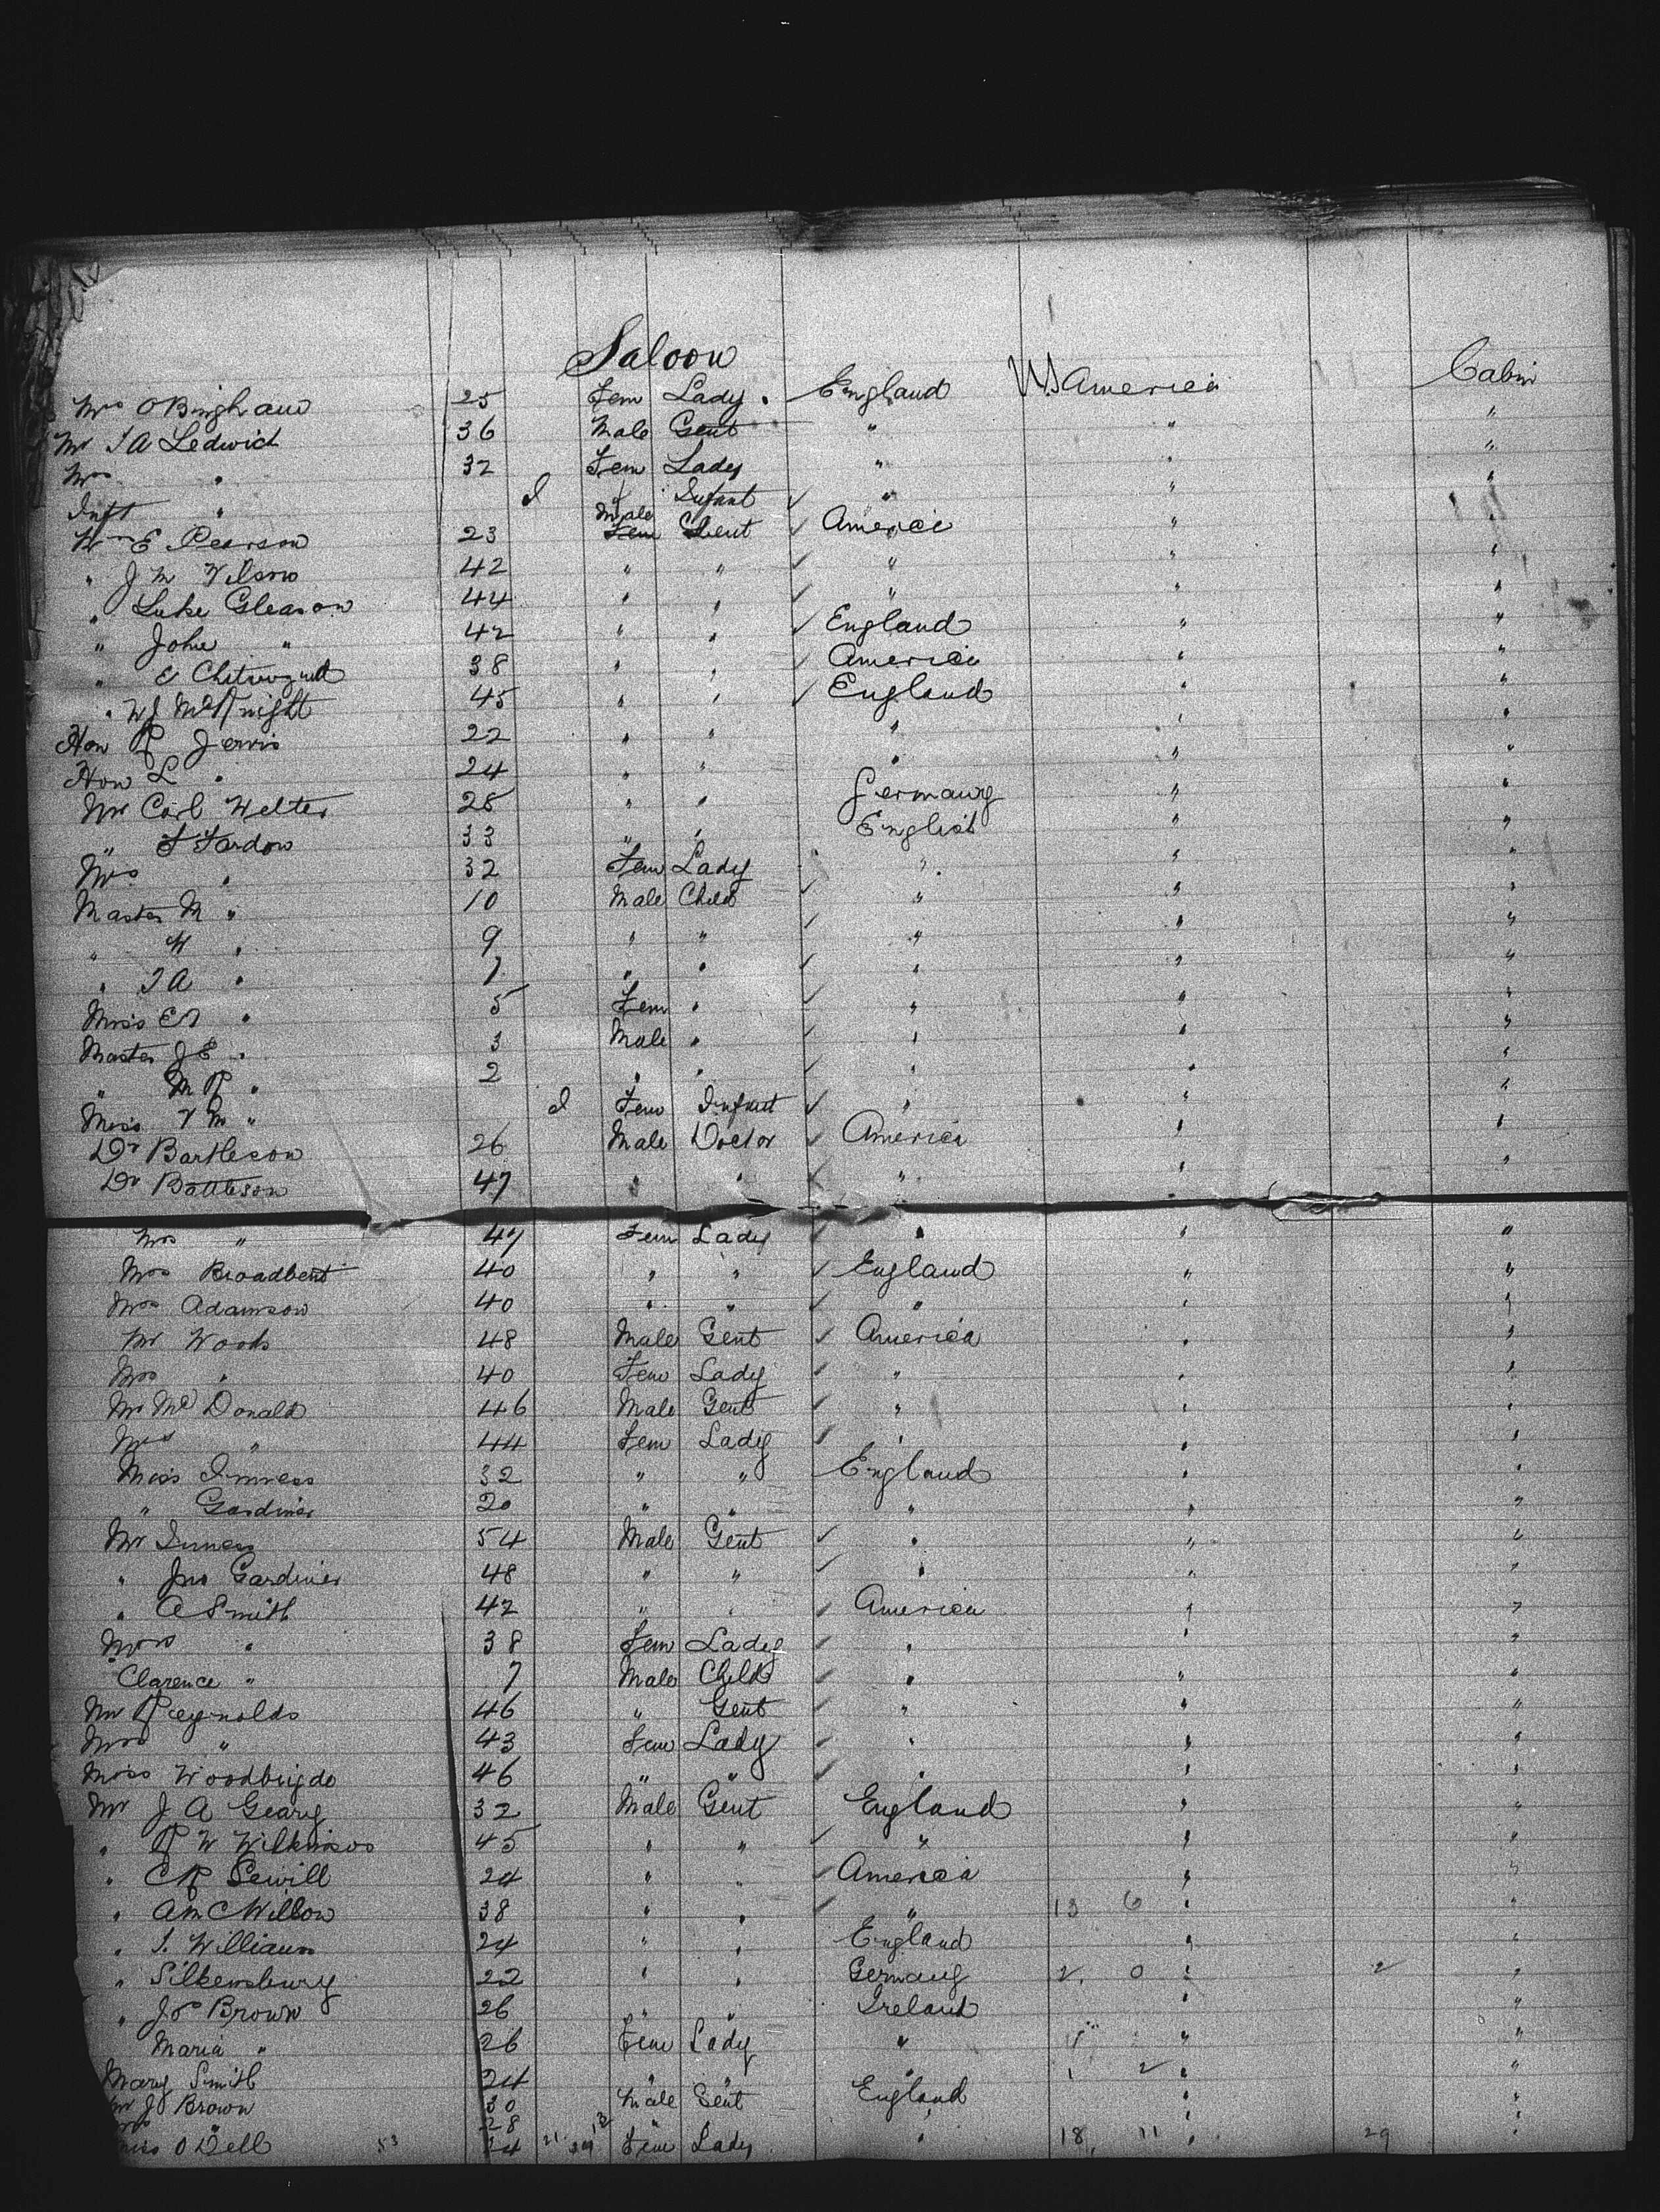 Saloon
Mrs O Bingham 25 Fem Lady England U.S America Cabin
Mr J A Ledwich 36 Male Gent " " "
Mrs " 32 Fem Lady " " "
Inft " I Infant " " "
Wm E Pearson 23 Male Gent America " "
" J M Wilson 42 " " " " "
" Luke Gleason 44 " " " " "
" John " 42 " " England " "
" E 38 " " America " "
" W J McKnight 45 " " England " "
Hon R Jervis 22 " " " " "
Hon L " 24 " " " " "
Mr Carl Welter 28 " " Germany " "
" F Fardon 33 " " English " "
Mrs " 32 Fem Lady " " "
Master M " 10 Male Child " " "
" H " 9 " " " " "
" J A " 7 " " " " "
Miss E " 5 Fem " " " "
Master J E " 3 Male " " " "
" M R " 2 " " " " "
Miss V M " I Fem Infant " " "
Dr Bartleson 26 Male Doctor America " "
Dr 47 " " " " "
Mrs " 47 Fem Lady " " "
Mrs Broadbent 40 " " England " "
Mrs Adamson 40 " " " " "
Mr Woods 48 Male Gent America " "
Mrs " 40 Fem Lady " " "
Mr McDonald 46 Male Gent " " "
Mrs " 44 Fem Lady " " "
Miss Inness 32 " " England " "
" Gardiner 20 " " " " "
Mr Inness 54 Male Gent " " "
" Jno Gardiner 48 " " " " "
" A Smith 42 " " America " "
Mrs " 38 Fem Lady " " "
Clarence " 7 Male Child " " "
Mr Reynolds 46 " Gent " " "
Mrs " 43 Fem Lady " " "
Miss Woodbrigde 46 " " " " "
Mr J A Geary 32 Male Gent England " "
" R W Wilkinson 45 " " " " "
" C R Sewill 24 " " America " "
" 38 " " " 13 6 " "
" J. Williams 24 " " England " "
" Silkensbury 22 " " Germany 2 0 " 2 "
" Brown 26 " " Ireland " "
Maria " 26 Fem Lady " " "
Mary Smith 24 " " " 1 2 " "
Mr J Brown 30 Male Gent England " "
" 28 " "
Miss O Dell 53 34 21 Fem Lady " 18 11 " 29 "